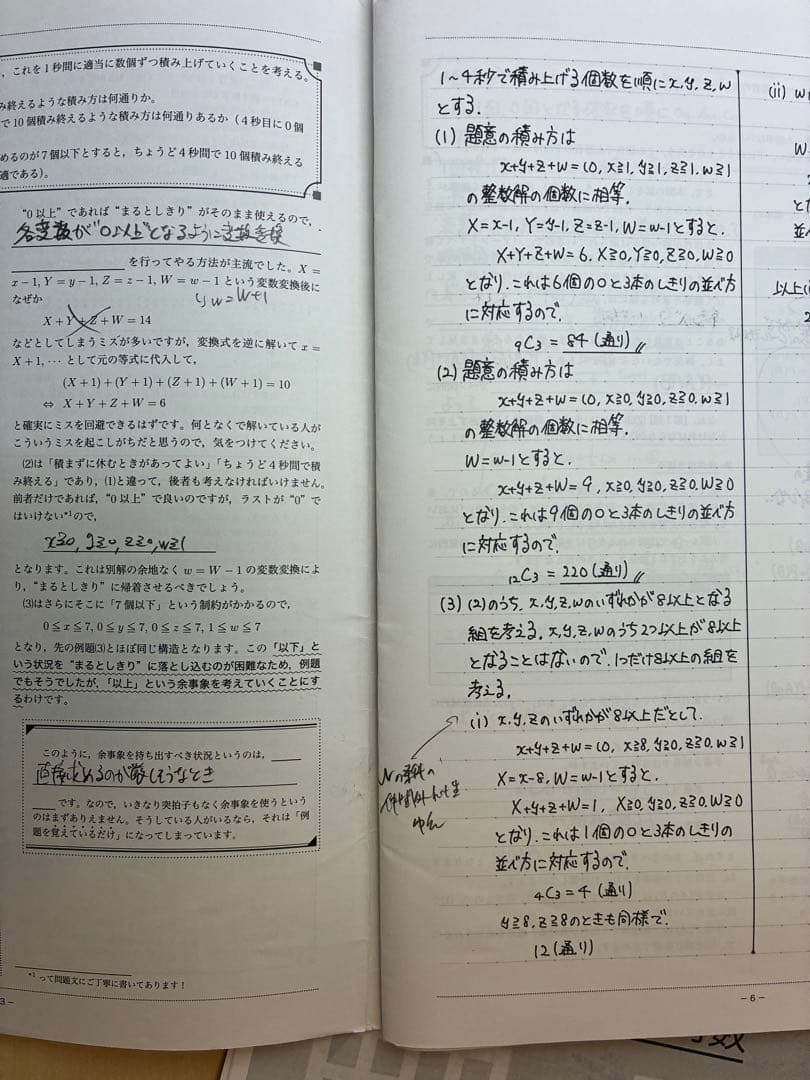 ，これを1秒間に適当に数個ずつ積み上げていくことを考える。
み終えるような積み方は何通りか。
で10個積み終えるような積み方は何通りあるか（4秒目に0個
めるのが7個以下とすると，ちょうど4秒間で10個積み終える
適である）。
“0以上”であれば“まるとしきり”がそのまま使えるので，
各変数が“0以上”となるように変数変換
を行ってやる方法が主流でした。X=
x−1, Y=y−1, Z=z−1, W=w−1という変数変換後に
なぜか
w=W+1
X+Y+Z+W=14
などとしてしまうミスが多いですが，変換式を逆に解いてx=
X+1,⋯として元の等式に代入して，
(X+1)+(Y+1)+(Z+1)+(W+1)=10
⇔ X+Y+Z+W=6
と確実にミスを回避できるはずです。何となくで解いている人が
こういうミスを起こしがちだと思うので，気をつけてください。
(2)は「積まずに休むときがあってよい」「ちょうど4秒間で積
み終える」であり，(1)と違って，後者も考えなければいけません。
前者だけであれば，“0以上”で良いのですが，ラストが“0”で
はいけない*1ので，
x≧0, y≧0, z≧0, w≧1
となります。これは別解の余地なくw=W−1の変数変換によ
り，“まるとしきり”に帰着させるべきでしょう。
(3)はさらにそこに「7個以下」という制約がかかるので，
0≦x≦7, 0≦y≦7, 0≦z≦7, 1≦w≦7
となり，先の例題(3)とほぼ同じ構造となります。この「以下」と
いう状況を“まるとしきり”に落とし込むのが困難なため，例題
でもそうでしたが，「以上」という余事象を考えていくことにす
るわけです。
このように，余事象を持ち出すべき状況というのは，
直接求めるのが厳しそうなとき
です。なので，いきなり突拍子もなく余事象を使うという
のはまずありえません。そうしている人がいるなら，それは「例
題を覚えているだけ」になってしまっています。
*1 って問題文にご丁寧に書いてあります！
3－
1~4秒で積み上げる個数を順にx,y,z,w
とする.
(1) 題意の積み方は
x+y+z+w=10, x≧1, y≧1, z≧1, w≧1
の整数解の個数に相等.
X=x-1, Y=y-1, Z=z-1, W=w-1とすると.
X+Y+Z+W=6, X≧0, Y≧0, Z≧0, W≧0
となり. これは6個の○と3本のしきりの並べ方
に対応するので.
₉C₃=84(通り)
(2) 題意の積み方は
x+y+z+w=10, x≧0, y≧0, z≧0, w≧1
の整数解の個数に相等.
W=w-1とすると.
x+y+z+W=9, x≧0, y≧0, z≧0, W≧0
となり. これは9個の○と3本のしきりの並べ方
に対応するので.
₁₂C₃=220(通り)
(3) (2)のうち. x,y,z,wのいずれかが8以上となる
組を考える. x,y,z,wのうち2つ以上が8以上
となることはないので. 1つだけ8以上の組を
考える.
(i) x,y,zのいずれかが8以上だとして.
x+y+z+w=10, x≧8, y≧0, z≧0, w≧1
X=x-8, W=w-1とすると.
X+y+z+W=1, X≧0, y≧0, z≧0, W≧0
となり. これは1個の○と3本のしきりの
並べ方に対応するので.
₄C₃=4(通り)
y≧8, z≧8のときも同様で.
12(通り)
－6－
(ii) w
W
と
並べ
以上(i
2
数